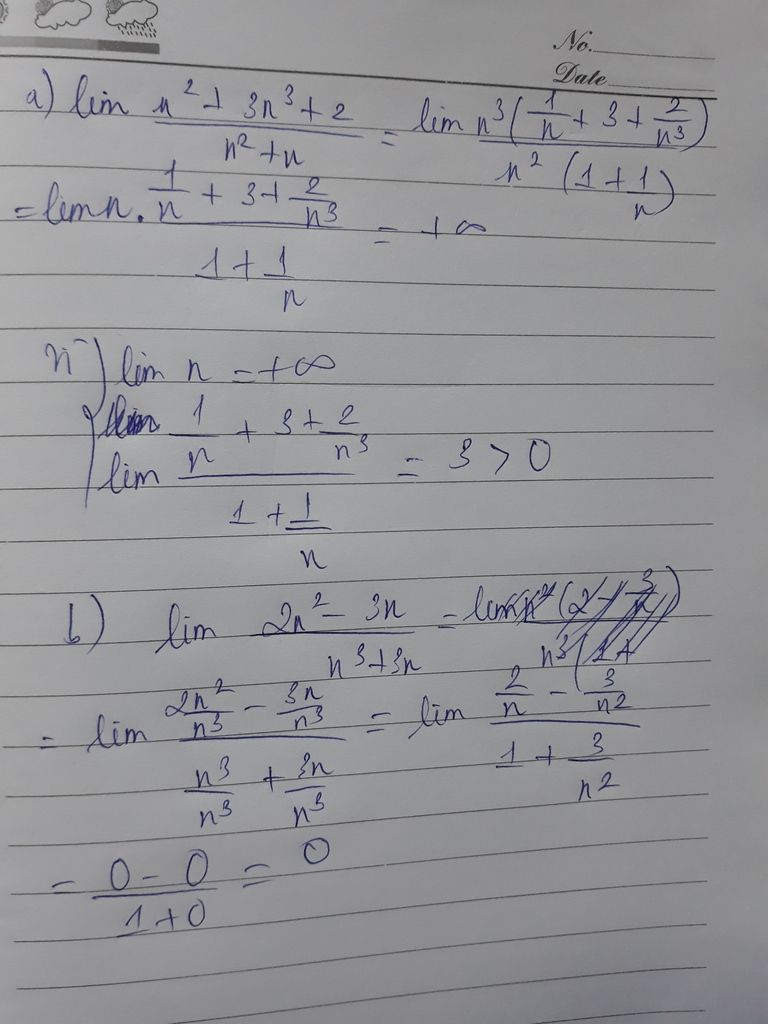 No.
Date
a) lim (n² + 3n³ + 2)/(n² + n) = lim n³(1/n + 3 + 2/n³)/n²(1 + 1/n)
= lim n. (1/n + 3 + 2/n³)/(1 + 1/n) = +∞
lim n = +∞
lim (1/n + 3 + 2/n³)/(1 + 1/n) = 3 > 0
b) lim (2n² - 3n)/(n³ + 3n) =
= lim (2n²/n³ - 3n/n³)/(n³/n³ + 3n/n³) = lim (2/n - 3/n²)/(1 + 3/n²)
= (0 - 0)/(1 + 0) = 0